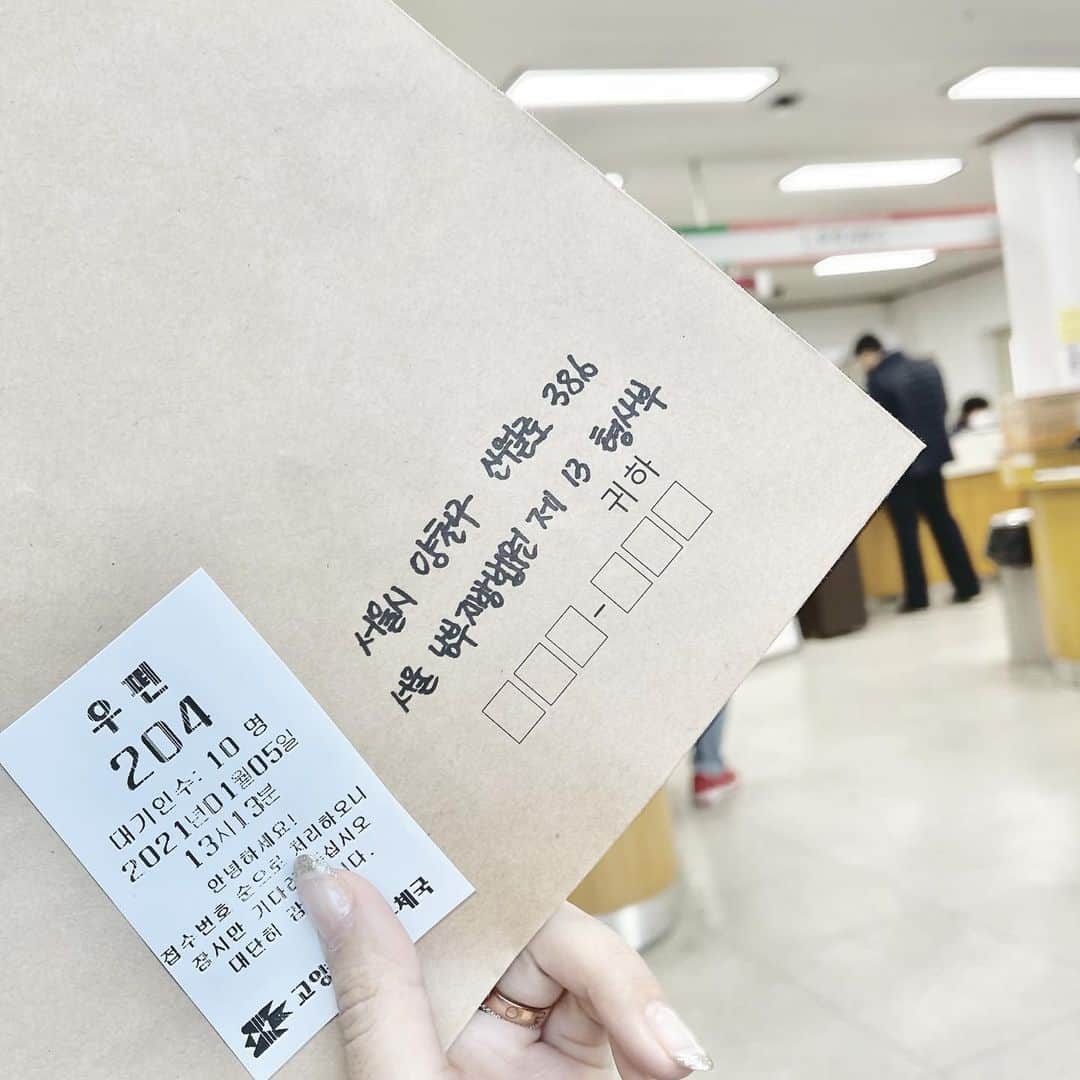 서울시 양천구 신월로 386
서울 남부지방법원 제 13 형사부
귀하
우편
204
대기인수: 10 명
2021년01월05일
13시13분
안녕하세요!
접수번호 순으로 처리하오니
잠시만 기다려 십시오
대단히 감 다.
고양 체국